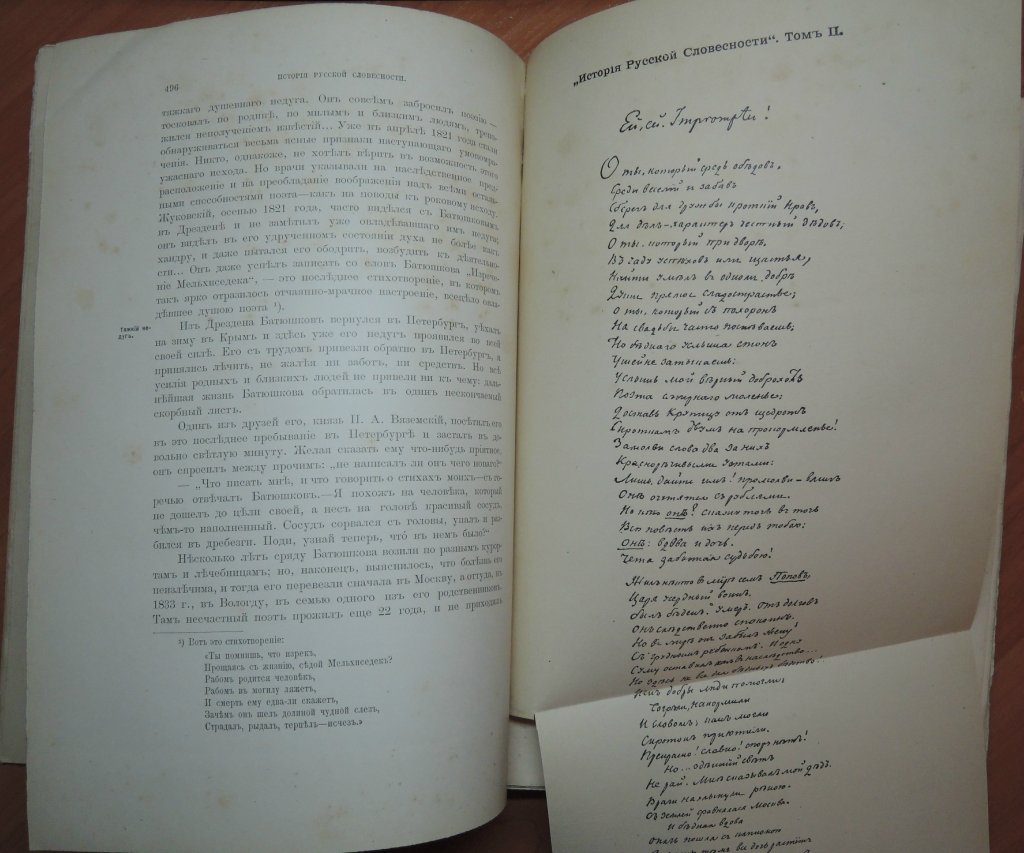 496
ИСТОРІЯ РУССКОЙ СЛОВЕСНОСТИ.
тяжкаго душевнаго недуга. Онъ совсѣмъ забросилъ поэзію—
тосковалъ по родинѣ, по милымъ и близкимъ людямъ, трево-
жился неполученіемъ извѣстій... Уже въ апрѣлѣ 1821 года стали
обнаруживаться весьма ясные признаки наступающаго умопомра-
ченія. Никто, однакоже, не хотѣлъ вѣрить въ возможность этого
ужаснаго исхода. Но врачи указывали на наслѣдственное пред-
расположеніе и на преобладаніе воображенія надъ всѣми осталь-
ными способностями поэта—какъ на поводы къ роковому исходу.
Жуковскій, осенью 1821 года, часто видѣлся съ Батюшковымъ
въ Дрезденѣ и не замѣтилъ уже овладѣвавшаго имъ недуга;
онъ видѣлъ въ его удрученномъ состояніи духа не болѣе какъ
хандру, и даже пытался его ободрить, возбудить къ дѣятельно-
сти... Онъ даже успѣлъ записать со словъ Батюшкова „Изрече-
ніе Мельхиседека“, — это послѣднее стихотвореніе, въ которомъ
такъ ярко отразилось отчаянно-мрачное настроеніе, всецѣло овла-
дѣвшее душою поэта ¹).
Тяжкій не-
дугъ.
Изъ Дрездена Батюшковъ вернулся въ Петербургъ, уѣхалъ
на зиму въ Крымъ и здѣсь уже его недугъ проявился во всей
своей силѣ. Его съ трудомъ привезли обратно въ Петербургъ, и
принялись лѣчить, не жалѣя ни заботъ, ни средствъ. Но всѣ
усилія родныхъ и близкихъ людей не привели ни къ чему; даль-
нѣйшая жизнь Батюшкова обратилась въ одинъ нескончаемый
скорбный листъ.
Одинъ изъ друзей его, князь П. А. Вяземскій, посѣтилъ его
въ это послѣднее пребываніе въ Петербургѣ и засталъ въ до-
вольно свѣтлую минуту. Желая сказать ему что-нибудь пріятное,
онъ спросилъ между прочимъ: „не написалъ ли онъ чего новаго?“
— „Что писать мнѣ, и что говорить о стихахъ моихъ—съ го-
речью отвѣчалъ Батюшковъ.—Я похожъ на человѣка, который
не дошелъ до цѣли своей, а несъ на головѣ красивый сосудъ,
чѣмъ-то наполненный. Сосудъ сорвался съ головы, упалъ и раз-
бился въ дребезги. Поди, узнай теперь, что въ немъ было?“
Нѣсколько лѣтъ сряду Батюшкова возили по разнымъ курор-
тамъ и лѣчебницамъ; но, наконецъ, выяснилось, что болѣзнь его
неизлѣчима, и тогда его перевезли сначала въ Москву, а оттуда, въ
1833 г., въ Вологду, въ семью одного изъ его родственниковъ.
Тамъ несчастный поэтъ прожилъ еще 22 года, и не приходилъ
¹) Вотъ это стихотвореніе:
«Ты помнишь, что изрекъ,
Прощаясь съ жизнію, сѣдой Мельхиседекъ?
Рабомъ родится человѣкъ,
Рабомъ въ могилу ляжетъ,
И смерть ему едва-ли скажетъ,
Зачѣмъ онъ шелъ долиной чудной слезъ,
Страдалъ, рыдалъ, терпѣлъ—исчезъ.»
„Исторія Русской Словесности“. Томъ II.
Ей, ей. Impromptu!
О ты, который средь обѣдовъ,
Среди веселій и забавъ
Сберегъ для дружбы кроткій нравъ,
Для дѣлъ—характеръ честный дѣдовъ;
О ты, который при дворѣ,
Въ чаду успѣховъ или щастья,
Найти умѣлъ въ одномъ добрѣ
Души прямое сладострастье;
О ты, который съ похоронъ
На свадьбы часто поспѣваешь,
Но бѣднаго услыша стонъ
Ушей не затыкаешь:
Услышь мой вѣрный доброхотъ
Поэта смирнаго моленье;
Доставь крупицу отъ щедротъ
Сироткамъ двумъ на прокормленье!
Замолви слова два за нихъ
Краснорѣчивыми устами:
Лишь дайте имъ! промолви—въ мигъ
Онѣ очутятся съ рублями.
Но кто онѣ? скажу точь въ точь
Всю повѣсть ихъ передъ тобою:
Онѣ: вдова и дочь.
Чета забытая судьбою!
Жилъ нѣкто въ мірѣ семъ Поповъ,
Царя усердный воинъ.
Былъ бѣденъ. Умеръ. Отъ долговъ
Онъ слѣдственно спокоенъ.
Но въ мірѣ онъ забылъ жену
Съ груднымъ ребенкомъ. И одно
Суму оставилъ имъ въ наслѣдство...
Но здѣсь не все для бѣдныхъ бѣдство!
Имъ добры люди помогли,
Согрѣли, накормили
И словомъ, какъ могли
Сиротокъ пріютили.
Прекрасно! славно! спору нѣтъ!
Но... здѣшній свѣтъ
Не рай. Мнѣ сказывалъ мой дѣдъ.
Враги нахлынули рѣкою.
Съ землей сравнялася Москва.
И бѣдная вдова
Опять пошла съ клюкою